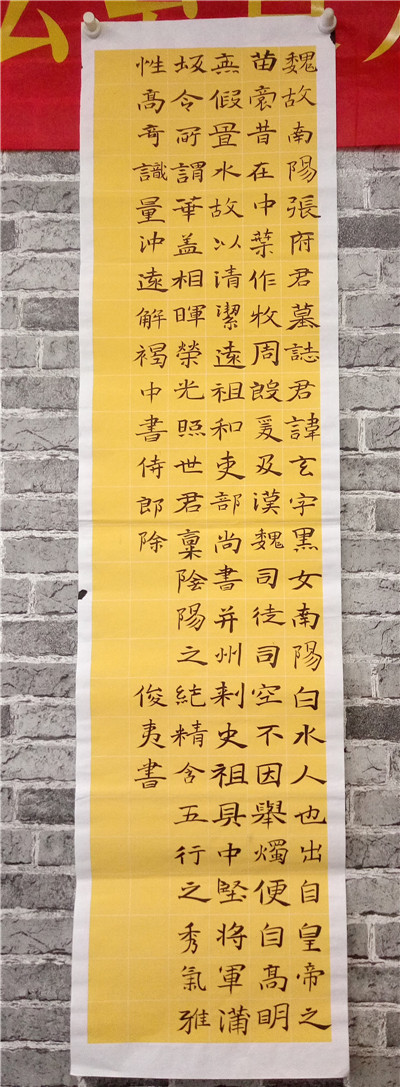 魏故南陽張府君墓誌君諱玄字黑女南陽白水人也出自皇帝之
苗裔昔在中葉作牧周殷爰及漢魏司徒司空不因舉燭便自高明
無假置水故以清潔遠祖和吏部尚書并州刺史祖具中堅將軍蒲
坂令所謂華蓋相暉榮光照世君稟陰陽之純精含五行之秀氣雅
性高奇識量沖遠解褐中書侍郎除
俊夷書